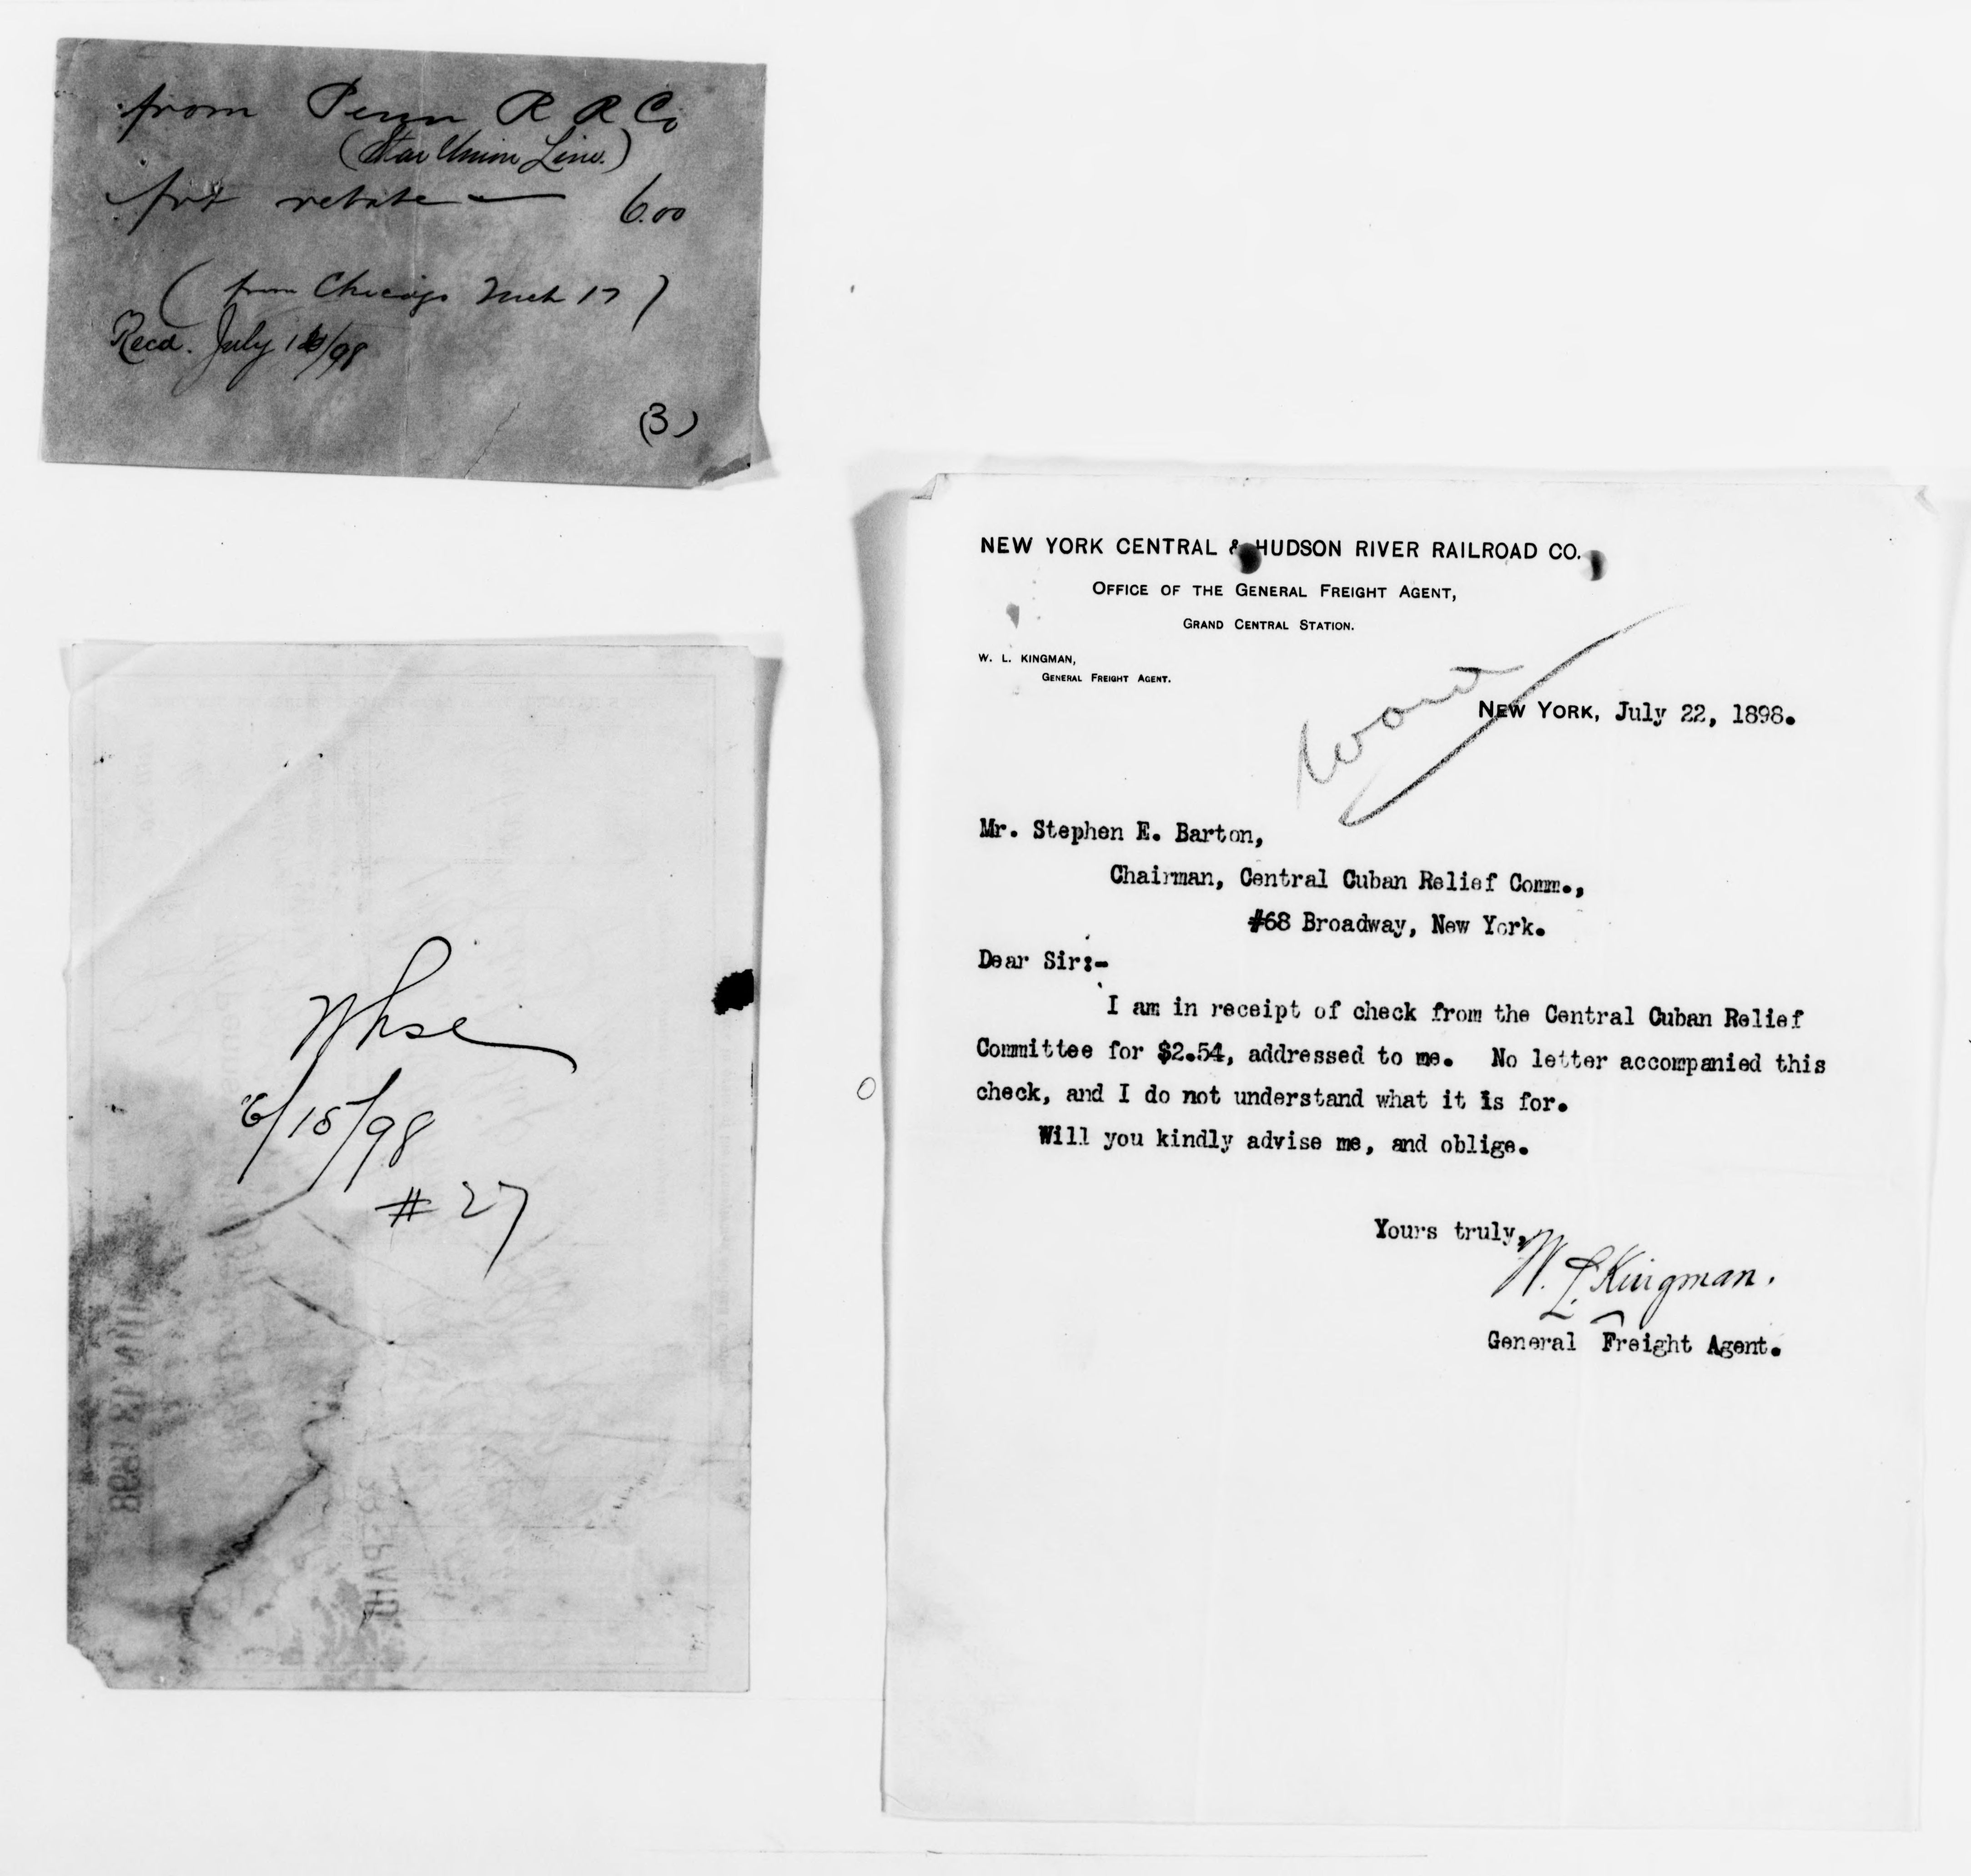 from Penn R R Co
(Star Union Line.)
frt rebate — 6.00
(from Chicago Mch 17)
Recd. July 1 /98
(3)
Whse
6/15/98
#27
NEW YORK CENTRAL & HUDSON RIVER RAILROAD CO.
OFFICE OF THE GENERAL FREIGHT AGENT,
GRAND CENTRAL STATION.
W. L. KINGMAN,
GENERAL FREIGHT AGENT.
NEW YORK, July 22, 1898.
Mr. Stephen E. Barton,
Chairman, Central Cuban Relief Comm.,
#68 Broadway, New York.
Dear Sir:-
I am in receipt of check from the Central Cuban Relief
Committee for $2.54, addressed to me. No letter accompanied this
check, and I do not understand what it is for.
Will you kindly advise me, and oblige.
Yours truly,
W. L. Kingman.
General Freight Agent.